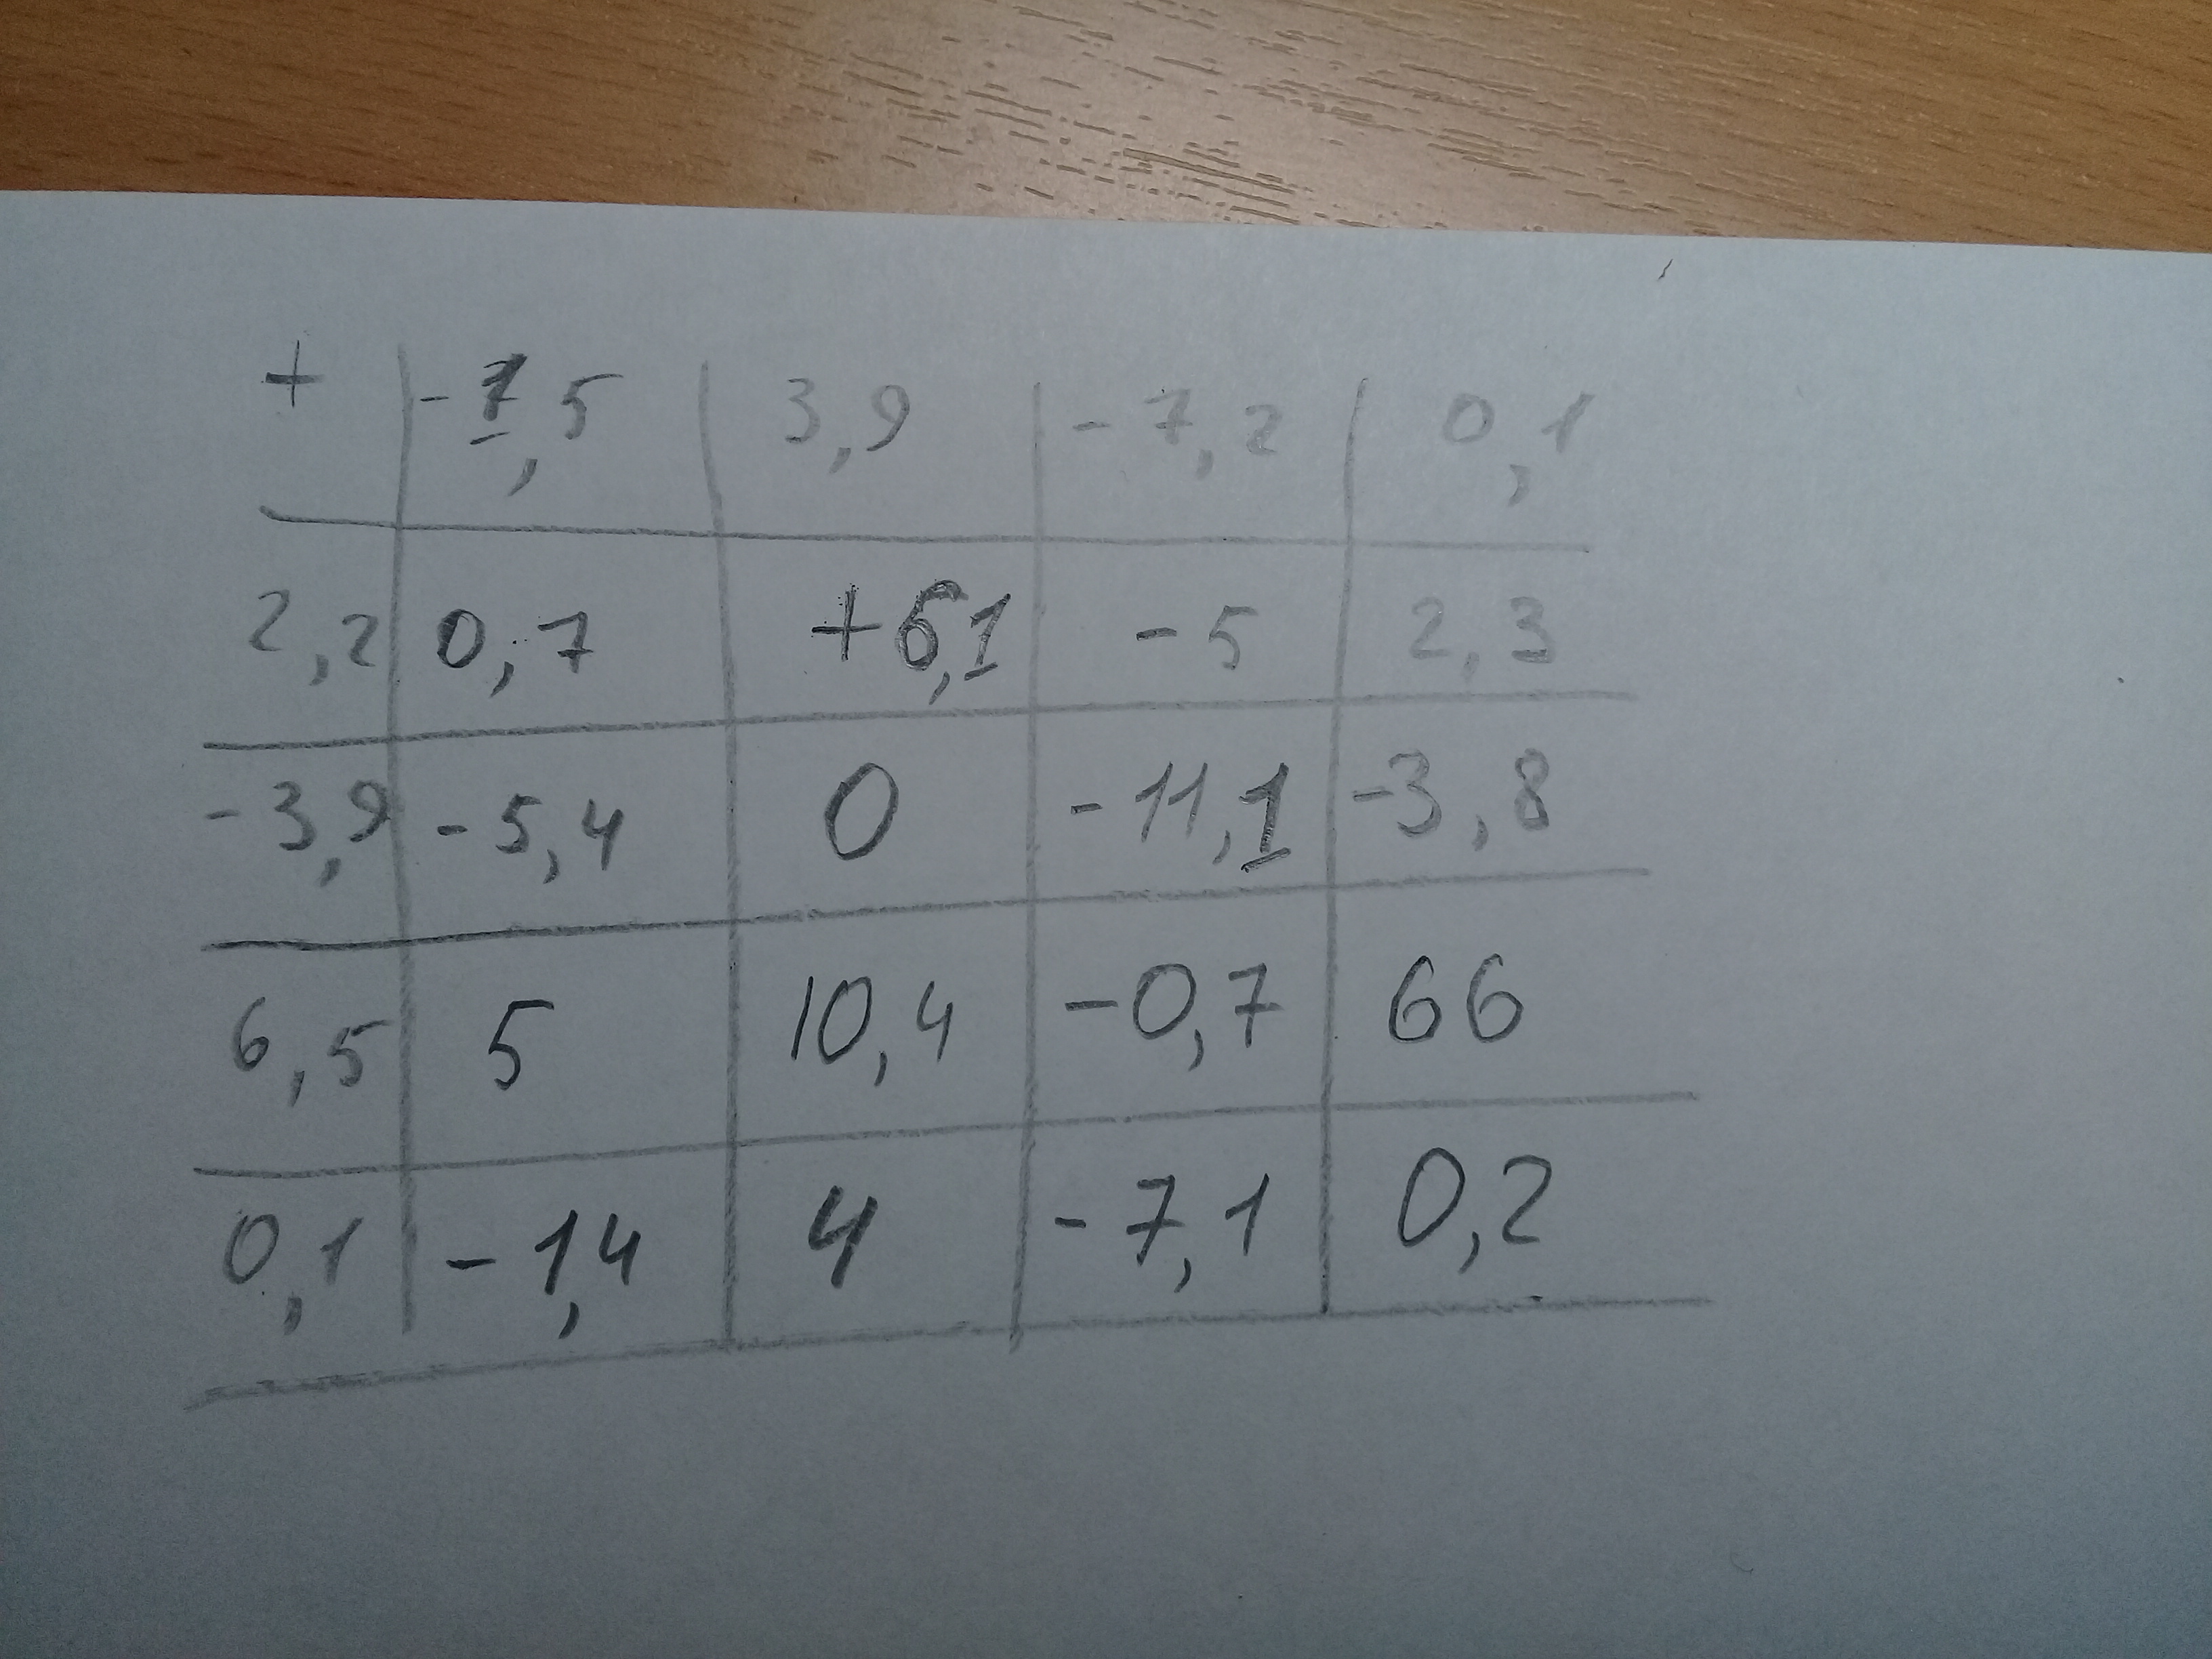 + -1,5 3,9 -7,2 0,1
2,2 0,7 +6,1 -5 2,3
-3,9 -5,4 0 -11,1 -3,8
6,5 5 10,4 -0,7 66
0,1 -1,4 4 -7,1 0,2